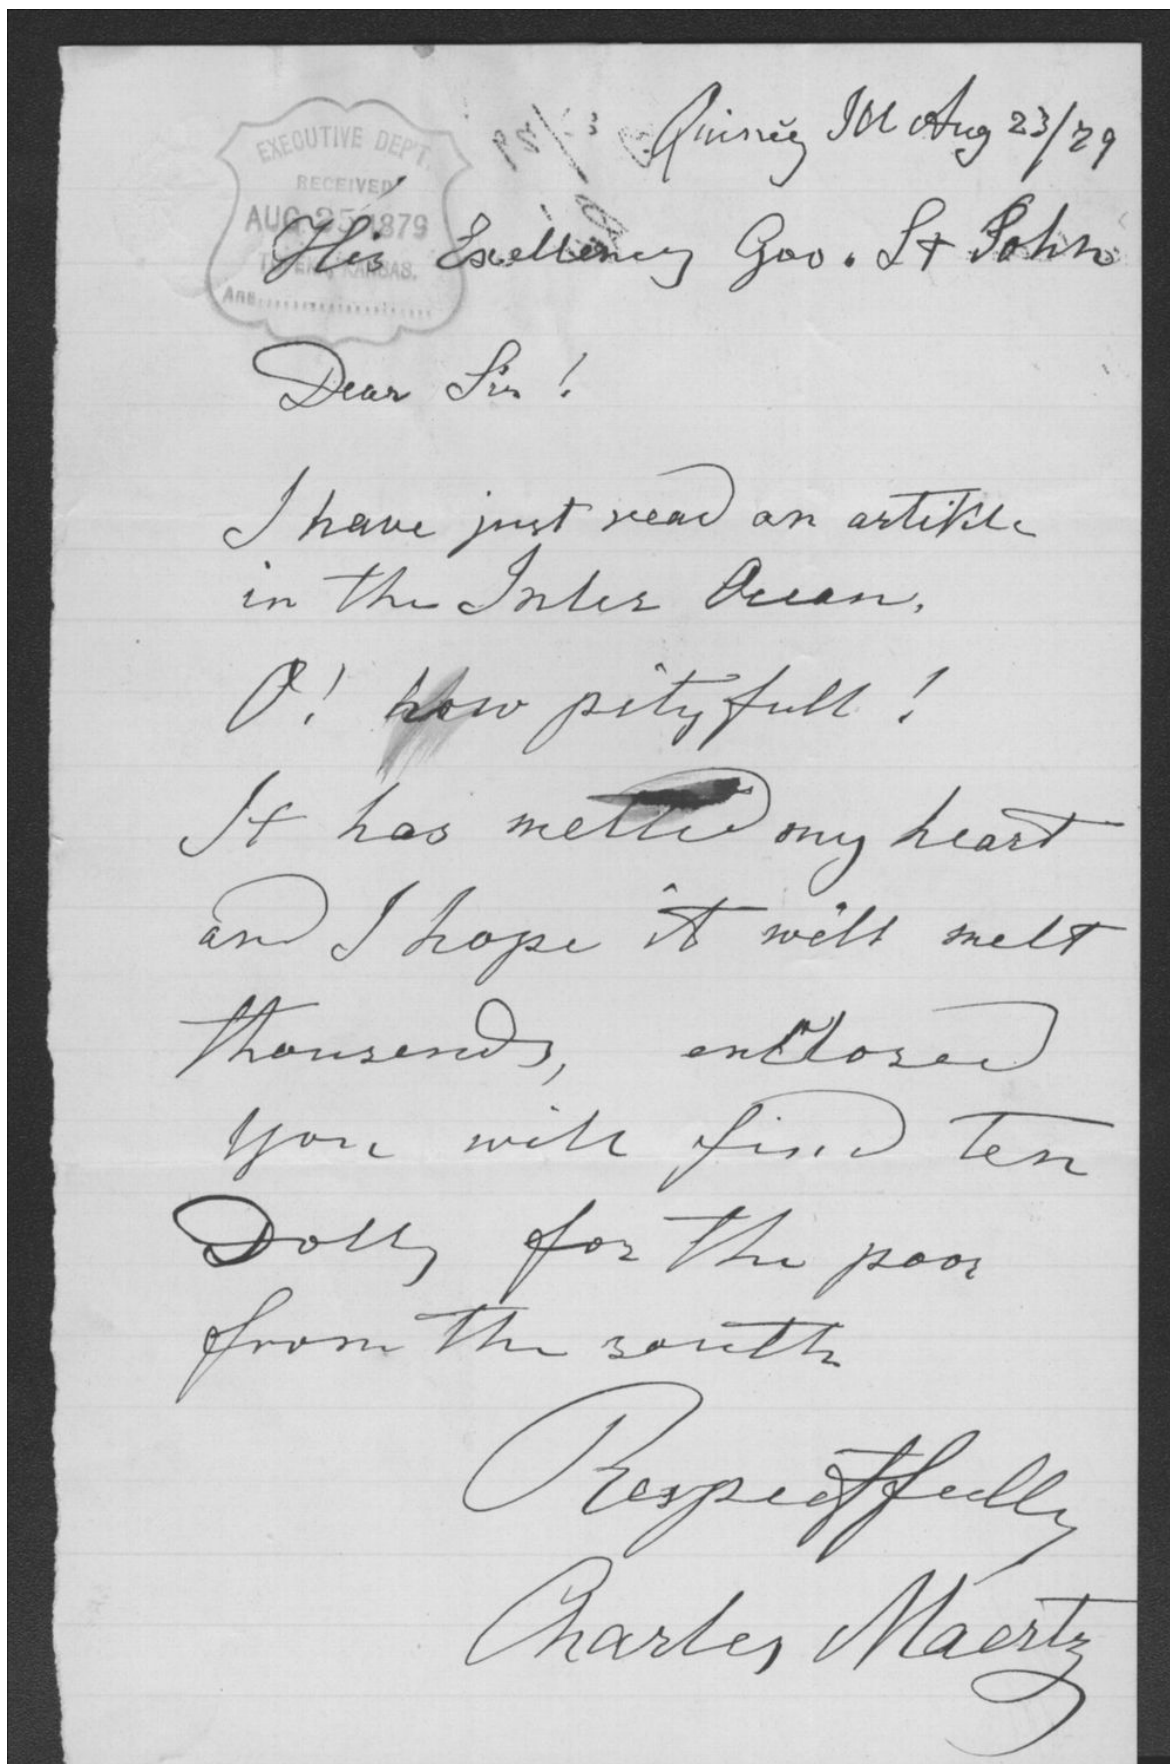 Quincy Ill Aug 23/79
EXECUTIVE DEP'T.
RECEIVED
AUG 25 1879
TOPEKA, KANSAS.
Ans
His Exellency Gov. St John
Dear Sir!
I have just read an artikle
in the Inter Ocean.
O! how pityfull!
It has melted my heart
and I hope it will melt
thousends, enclosed
you will find ten
Dolls for the poor
from the south
Respectfully
Charles Maertz